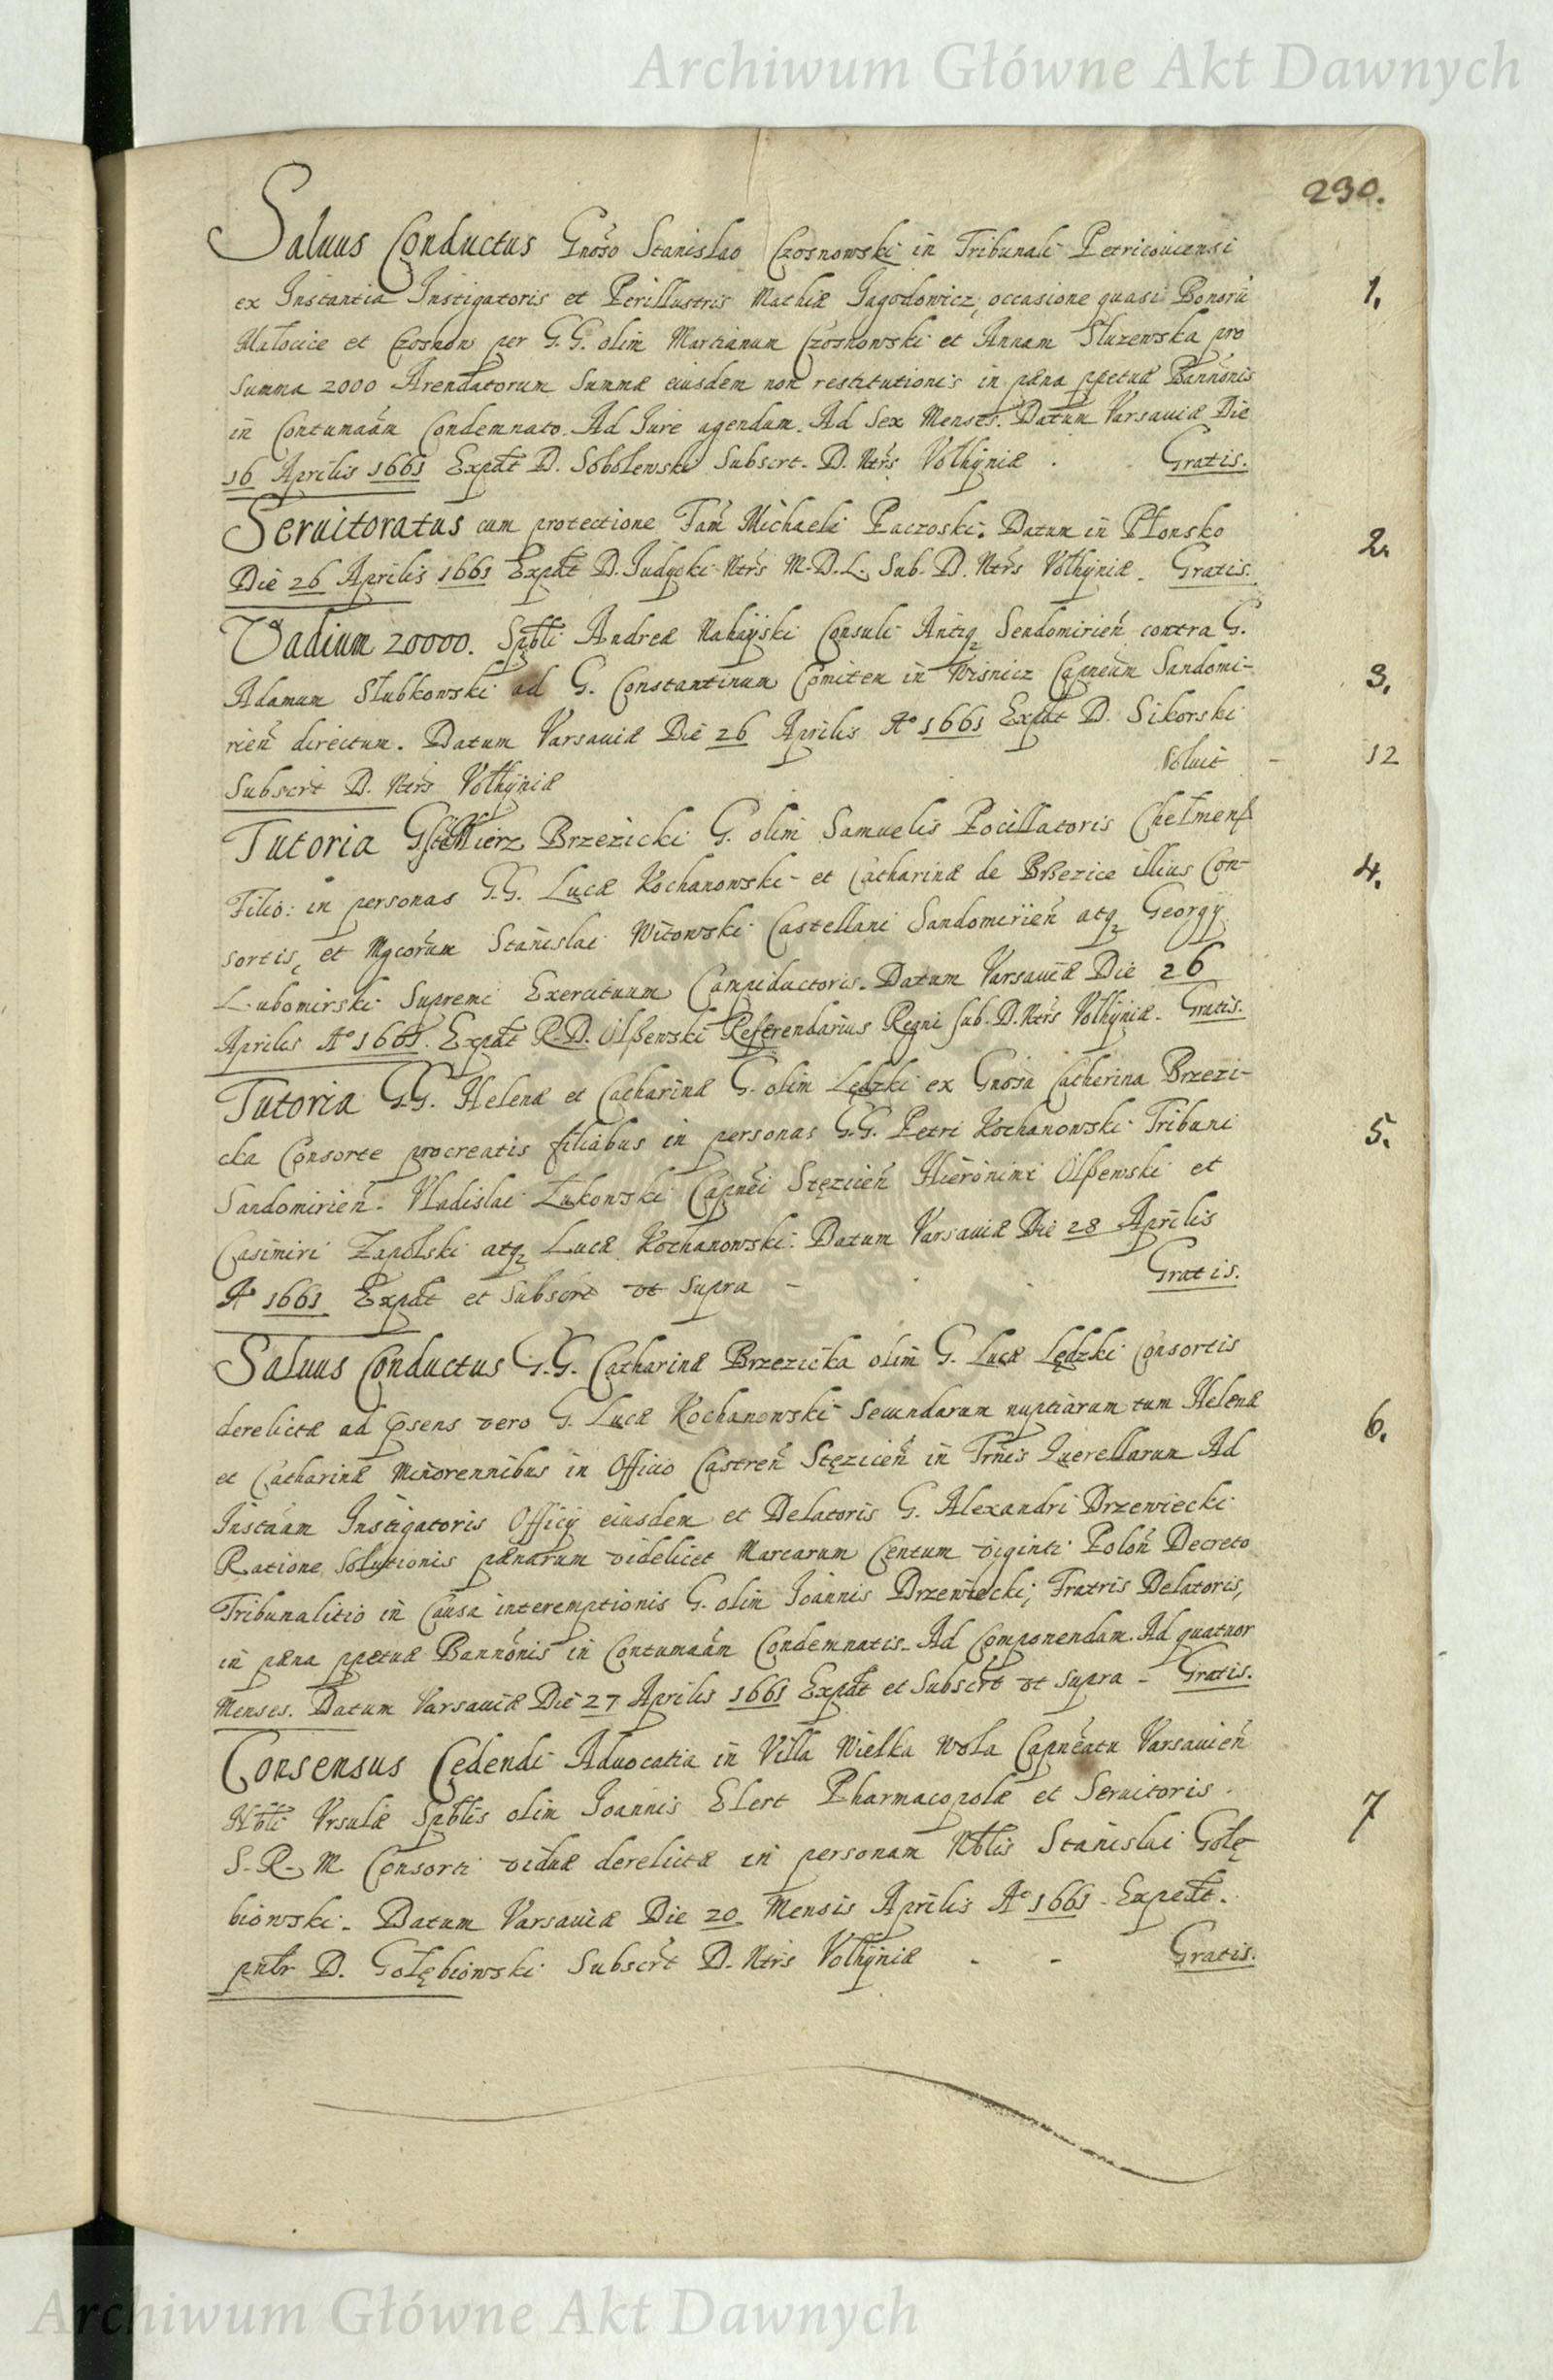 Archiwum Główne Akt Dawnych
230.
Saluus Conductus Gnõso Stanislao Czosnowski in Tribunali Petricouiensi
ex Instantia Instigatoris et Perillustris Mathiæ Jagodowicz, occasione quasi Bonorũ 1.
Małocice et Czosnow per G. G. olim Martianum Czosnowski et Annam Służewska pro
Summa 2000 Arendatorum Summæ eiusdem non restitutionis in pæna ppetuæ Bannõnis
in Contumaãm Condemnato. Ad Jure agendum. Ad Sex Menses. Datum Varsauiæ Die
16 Aprilis 1661 Expdt D. Sobolewski Subscrt. D. Ntrs Volhyniæ . Gratis.
Seruitoratus cum protectione Fam̃ Michaeli Paczoski. Datum in Płonsko 2.
Die 26 Aprilis 1661 Expdt D. Judycki Ntrs M. D. L. Sub. D. Ntrs Volhyniæ. Gratis.
Vadium 20000. Spbli Andreæ Nahayski Consuli Antiq Sendomirieñ contra G.
Adamum Słubkowski ad G. Constantinum Comitem in Wisnicz Capneum Sandomi- 3.
rieñ directum. Datum Varsauiæ Die 26 Aprilis Aº 1661 Expdt D. Sikorski
Soluit - 12
Subscrt D. Ntrs Volhyniæ
Tutoria Brzezicki G. olim Samuelis Pocillatoris Chełmens
Filio: in personas G.G. Lucæ Kochanowski et Catharinæ de Brzezice illius Con- 4.
sortis, et Mgcorum Stanislai Witowski Castellani Sandomirieñ atq Georgy
Lubomirski Supremi Exercituum Campiductoris. Datum Varsauiæ Die 26
Aprilis Aº 1661. Expdt R. D. Olszewski Referendarius Regni Sub. D. Ntrs Volhyniæ. Gratis.
Tutoria G.G. Helenæ et Catharinæ G. olim Lędzki ex Gnosa Catherina Brzezi-
cka Consorte procreatis filiabus in personas G.G. Petri Kochanowski Tribuni 5.
Sandomirieñ. Vladislai Łukowski Capnei Stęzicieñ Hieronimi Olszewski et
Casimiri Zapolski atq Lucæ Kochanowski. Datum Varsauiæ Die 28 Aprilis
Aº 1661 Expdt et Subscrt vt Supra - Gratis.
Saluus Conductus G.G. Catharinæ Brzezicka olim G. Lucæ Lędzki Consortis
derelictæ ad psens vero G. Lucæ Kochanowski Secundarum nuptiarum tum Helenæ 6.
et Catharinæ Minorennibus in Officio Castreñ Stęzicieñ in Trñis Querellarum Ad
Instãam Instigatoris Officy eiusdem et Delatoris G. Alexandri Drzewiecki
Ratione Solutionis pænarum videlicet Marcarum Centum viginti Poloñ Decreto
Tribunalitio in Causa interemptionis G. olim Joannis Drzewiecki, Fratris Delatoris,
in pæna ppetuæ Bannõnis in Contumaãm Condemnatis. Ad Componendam. Ad quatuor
Menses. Datum Varsauiæ Die 27 Aprilis 1661 Expdt et Subscrt vt Supra - Gratis.
Consensus Cedendi Aduocatia in Villa Wielka Wola Capneatu Varsauieñ
Nbli Vrsulæ Spblis olim Joannis Elert Pharmacopolæ et Seruitoris 7
S. R. M. Consorti viduæ derelictæ in personam Nblis Stanislai Golę-
biowski. Datum Varsauiæ Die 20. Mensis Aprilis Aº 1661. Expedt.
pntr D. Gołębiowski Subscrt D. Ntrs Volhyniæ . - Gratis.
Archiwum Główne Akt Dawnych